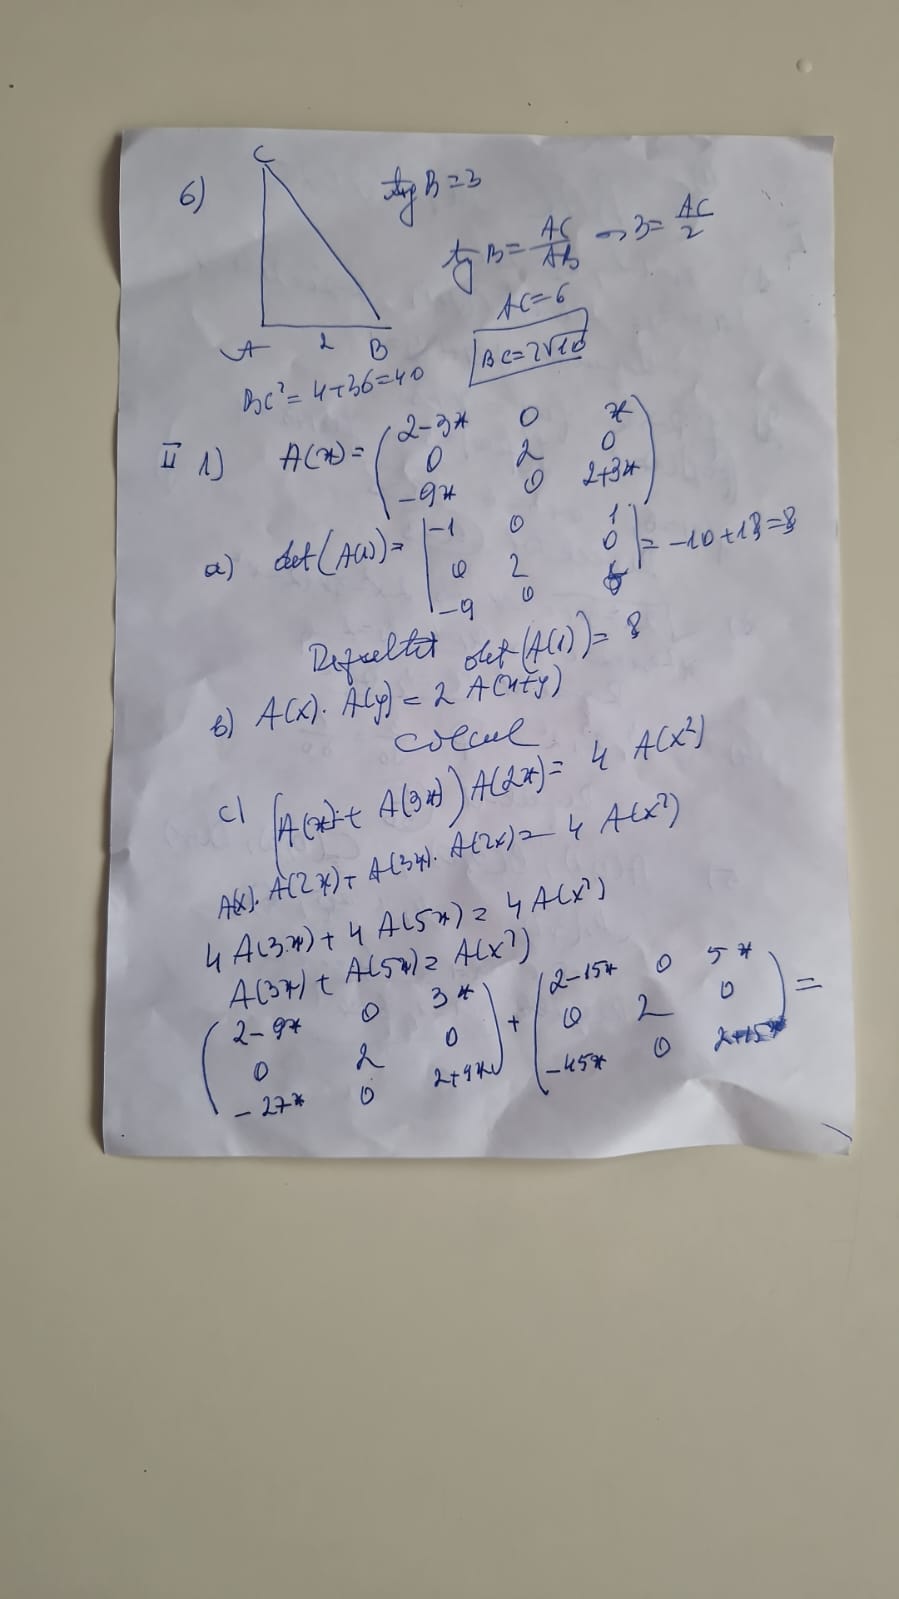 6)
C
tg B=3
tg B= AC/AB → 3= AC/2
AC=6
A 2 B
BC=2√10
BC²= 4+36=40
II 1) A(x)= (2-3x 0 x
0 2 0
-9x 0 2+3x)
a) det(A(1))= |-1 0 1
0 2 0
-9 0 5| = -10+18=8
Rezultă det(A(1))= 8
b) A(x). A(y)= 2 A(x+y)
calcul
c) (A(x)+ A(3x)) A(2x)= 4 A(x²)
A(x). A(2x)+ A(3x). A(2x)= 4 A(x²)
4 A(3x)+ 4 A(5x)= 4A(x²)
A(3x)+ A(5x)= A(x²)
(2-9x 0 3x
0 2 0
-27x 0 2+9x) + (2-15x 0 5x
0 2 0
-45x 0 2+15x) =